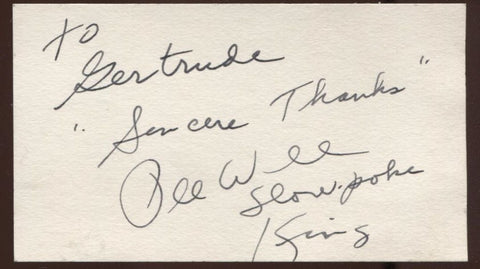 To
Gertrude
"Sincere Thanks"
Pee Wee
Slow-poke
King